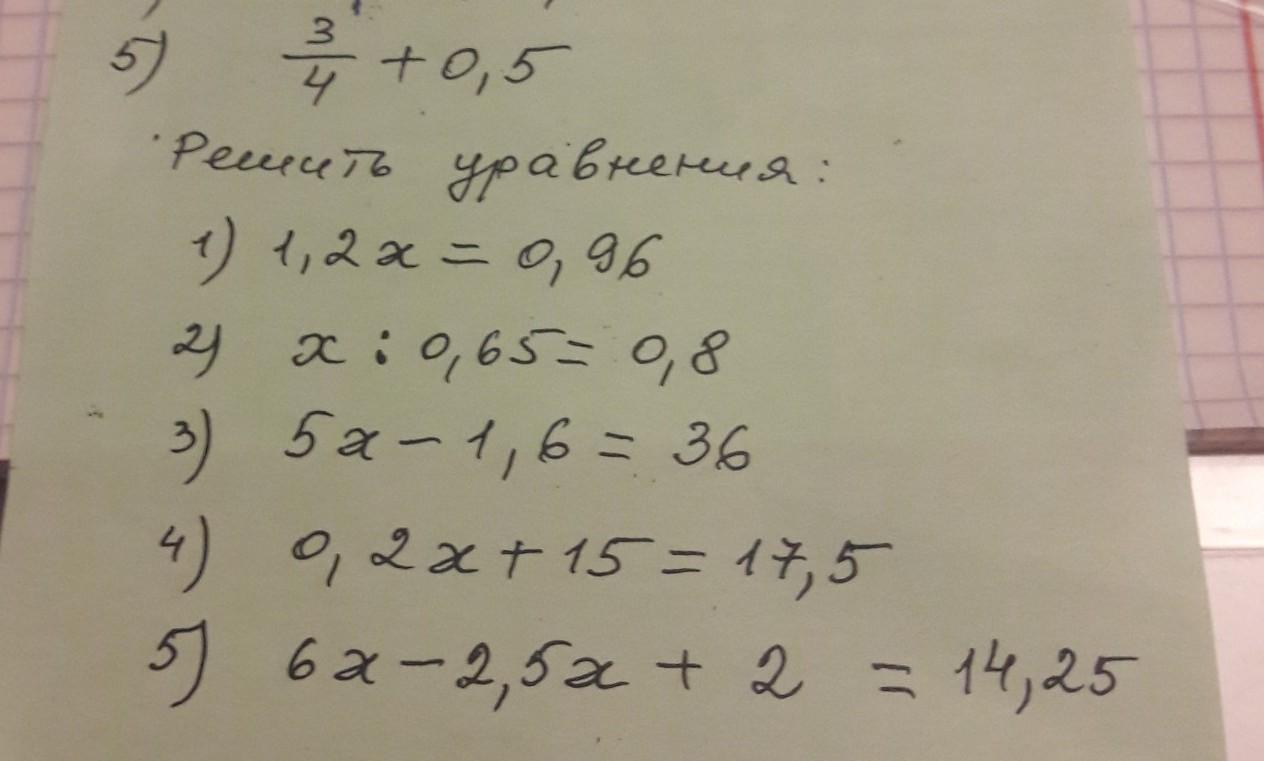 5) 3/4 + 0,5
Решить уравнения:
1) 1,2x = 0,96
2) x : 0,65 = 0,8
3) 5x - 1,6 = 36
4) 0,2x + 15 = 17,5
5) 6x - 2,5x + 2 = 14,25